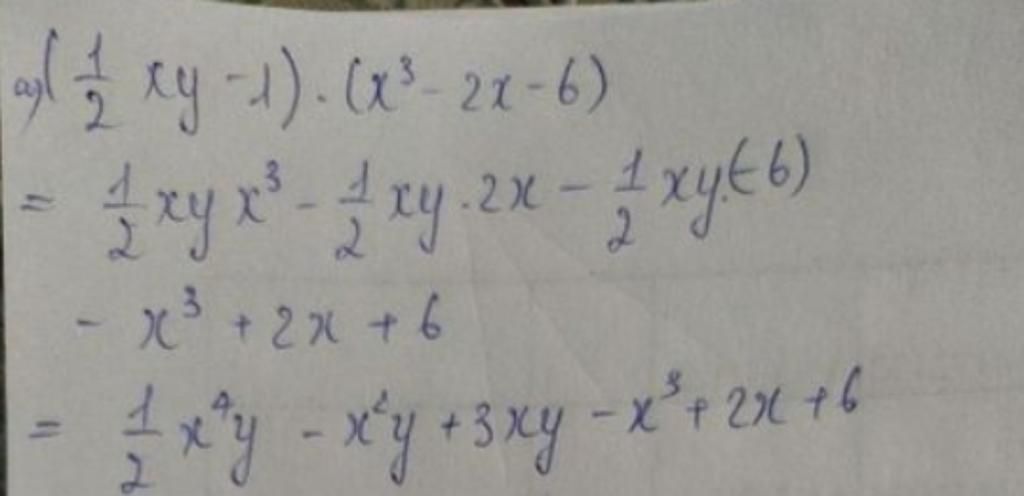 a) (1/2 xy - 1) . (x³ - 2x - 6)
= 1/2 xy x³ - 1/2 xy . 2x - 1/2 xy.(-6)
- x³ + 2x + 6
= 1/2 x⁴y - x²y + 3xy - x³ + 2x + 6